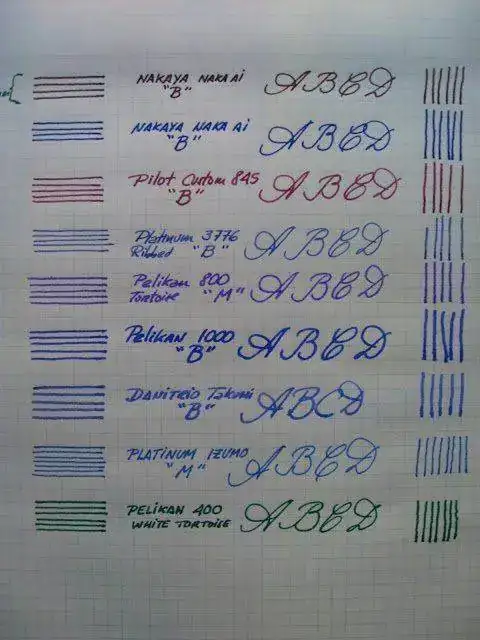 NAKAYA NAKA AI ABCD
"B"
NAKAYA NAKA AI ABCD
"B"
Pilot Custom 845 ABCD
"B"
Platinum 3776 ABCD
Ribbed "B"
Pelikan 800 ABCD
Tortoise "M"
PELIKAN 1000 ABCD
"B"
DANITRIO Takumi ABCD
"B"
PLATINUM IZUMO ABCD
"M"
PELIKAN 400 ABCD
WHITE TORTOISE